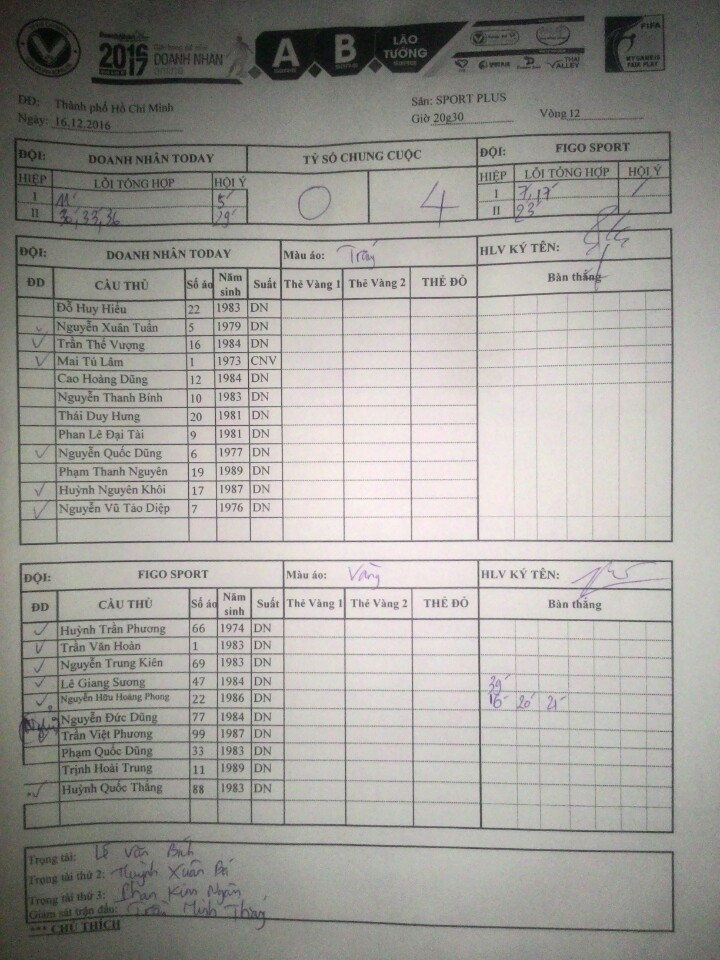 2016 2017 DOANH NHÂN online
A B LÃO TƯỚNG
THAI VALLEY
FIFA
FAIR PLAY
ĐĐ: Thành phố Hồ Chí Minh Sân: SPORT PLUS
Ngày: 16.12.2016 Giờ 20g30 Vòng 12
ĐỘI: DOANH NHÂN TODAY TỶ SỐ CHUNG CUỘC ĐỘI: FIGO SPORT
HIỆP LỖI TỔNG HỢP HỘI Ý 0 4 HIỆP LỖI TỔNG HỢP HỘI Ý
I 11' 5' I 7, 17' /
II 30, 33, 36 29' II 23'
ĐỘI: DOANH NHÂN TODAY Màu áo: Trắng HLV KÝ TÊN:
ĐD CẦU THỦ Số áo Năm sinh Suất Thẻ Vàng 1 Thẻ Vàng 2 THẺ ĐỎ Bàn thắng
Đỗ Huy Hiếu 22 1983 DN
✓ Nguyễn Xuân Tuấn 5 1979 DN
✓ Trần Thế Vượng 16 1984 DN
✓ Mai Tú Lâm 1 1973 CNV
Cao Hoàng Dũng 12 1984 DN
Nguyễn Thanh Bính 10 1983 DN
Thái Duy Hưng 20 1981 DN
Phan Lê Đại Tài 9 1981 DN
✓ Nguyễn Quốc Dũng 6 1977 DN
Phạm Thanh Nguyên 19 1989 DN
✓ Huỳnh Nguyên Khôi 17 1987 DN
✓ Nguyễn Vũ Táo Diệp 7 1976 DN
ĐỘI: FIGO SPORT Màu áo: Vàng HLV KÝ TÊN:
ĐD CẦU THỦ Số áo Năm sinh Suất Thẻ Vàng 1 Thẻ Vàng 2 THẺ ĐỎ Bàn thắng
✓ Huỳnh Trần Phương 66 1974 DN
✓ Trần Văn Hoàn 1 1983 DN
✓ Nguyễn Trung Kiên 69 1983 DN
✓ Lê Giang Sương 47 1984 DN 39'
✓ Nguyễn Hữu Hoàng Phong 22 1986 DN 16' 20' 21'
Nguyễn Đức Dũng 77 1984 DN
Trần Việt Phương 99 1987 DN
Phạm Quốc Dũng 33 1983 DN
Trịnh Hoài Trung 11 1989 DN
✓ Huỳnh Quốc Thắng 88 1983 DN
Trọng tài: Lê Văn
Trọng tài thứ 2: Huỳnh Xuân
Trọng tài thứ 3: Phan Kim Ngân
Giám sát trận đấu: Trần Minh
*** CHÚ THÍCH